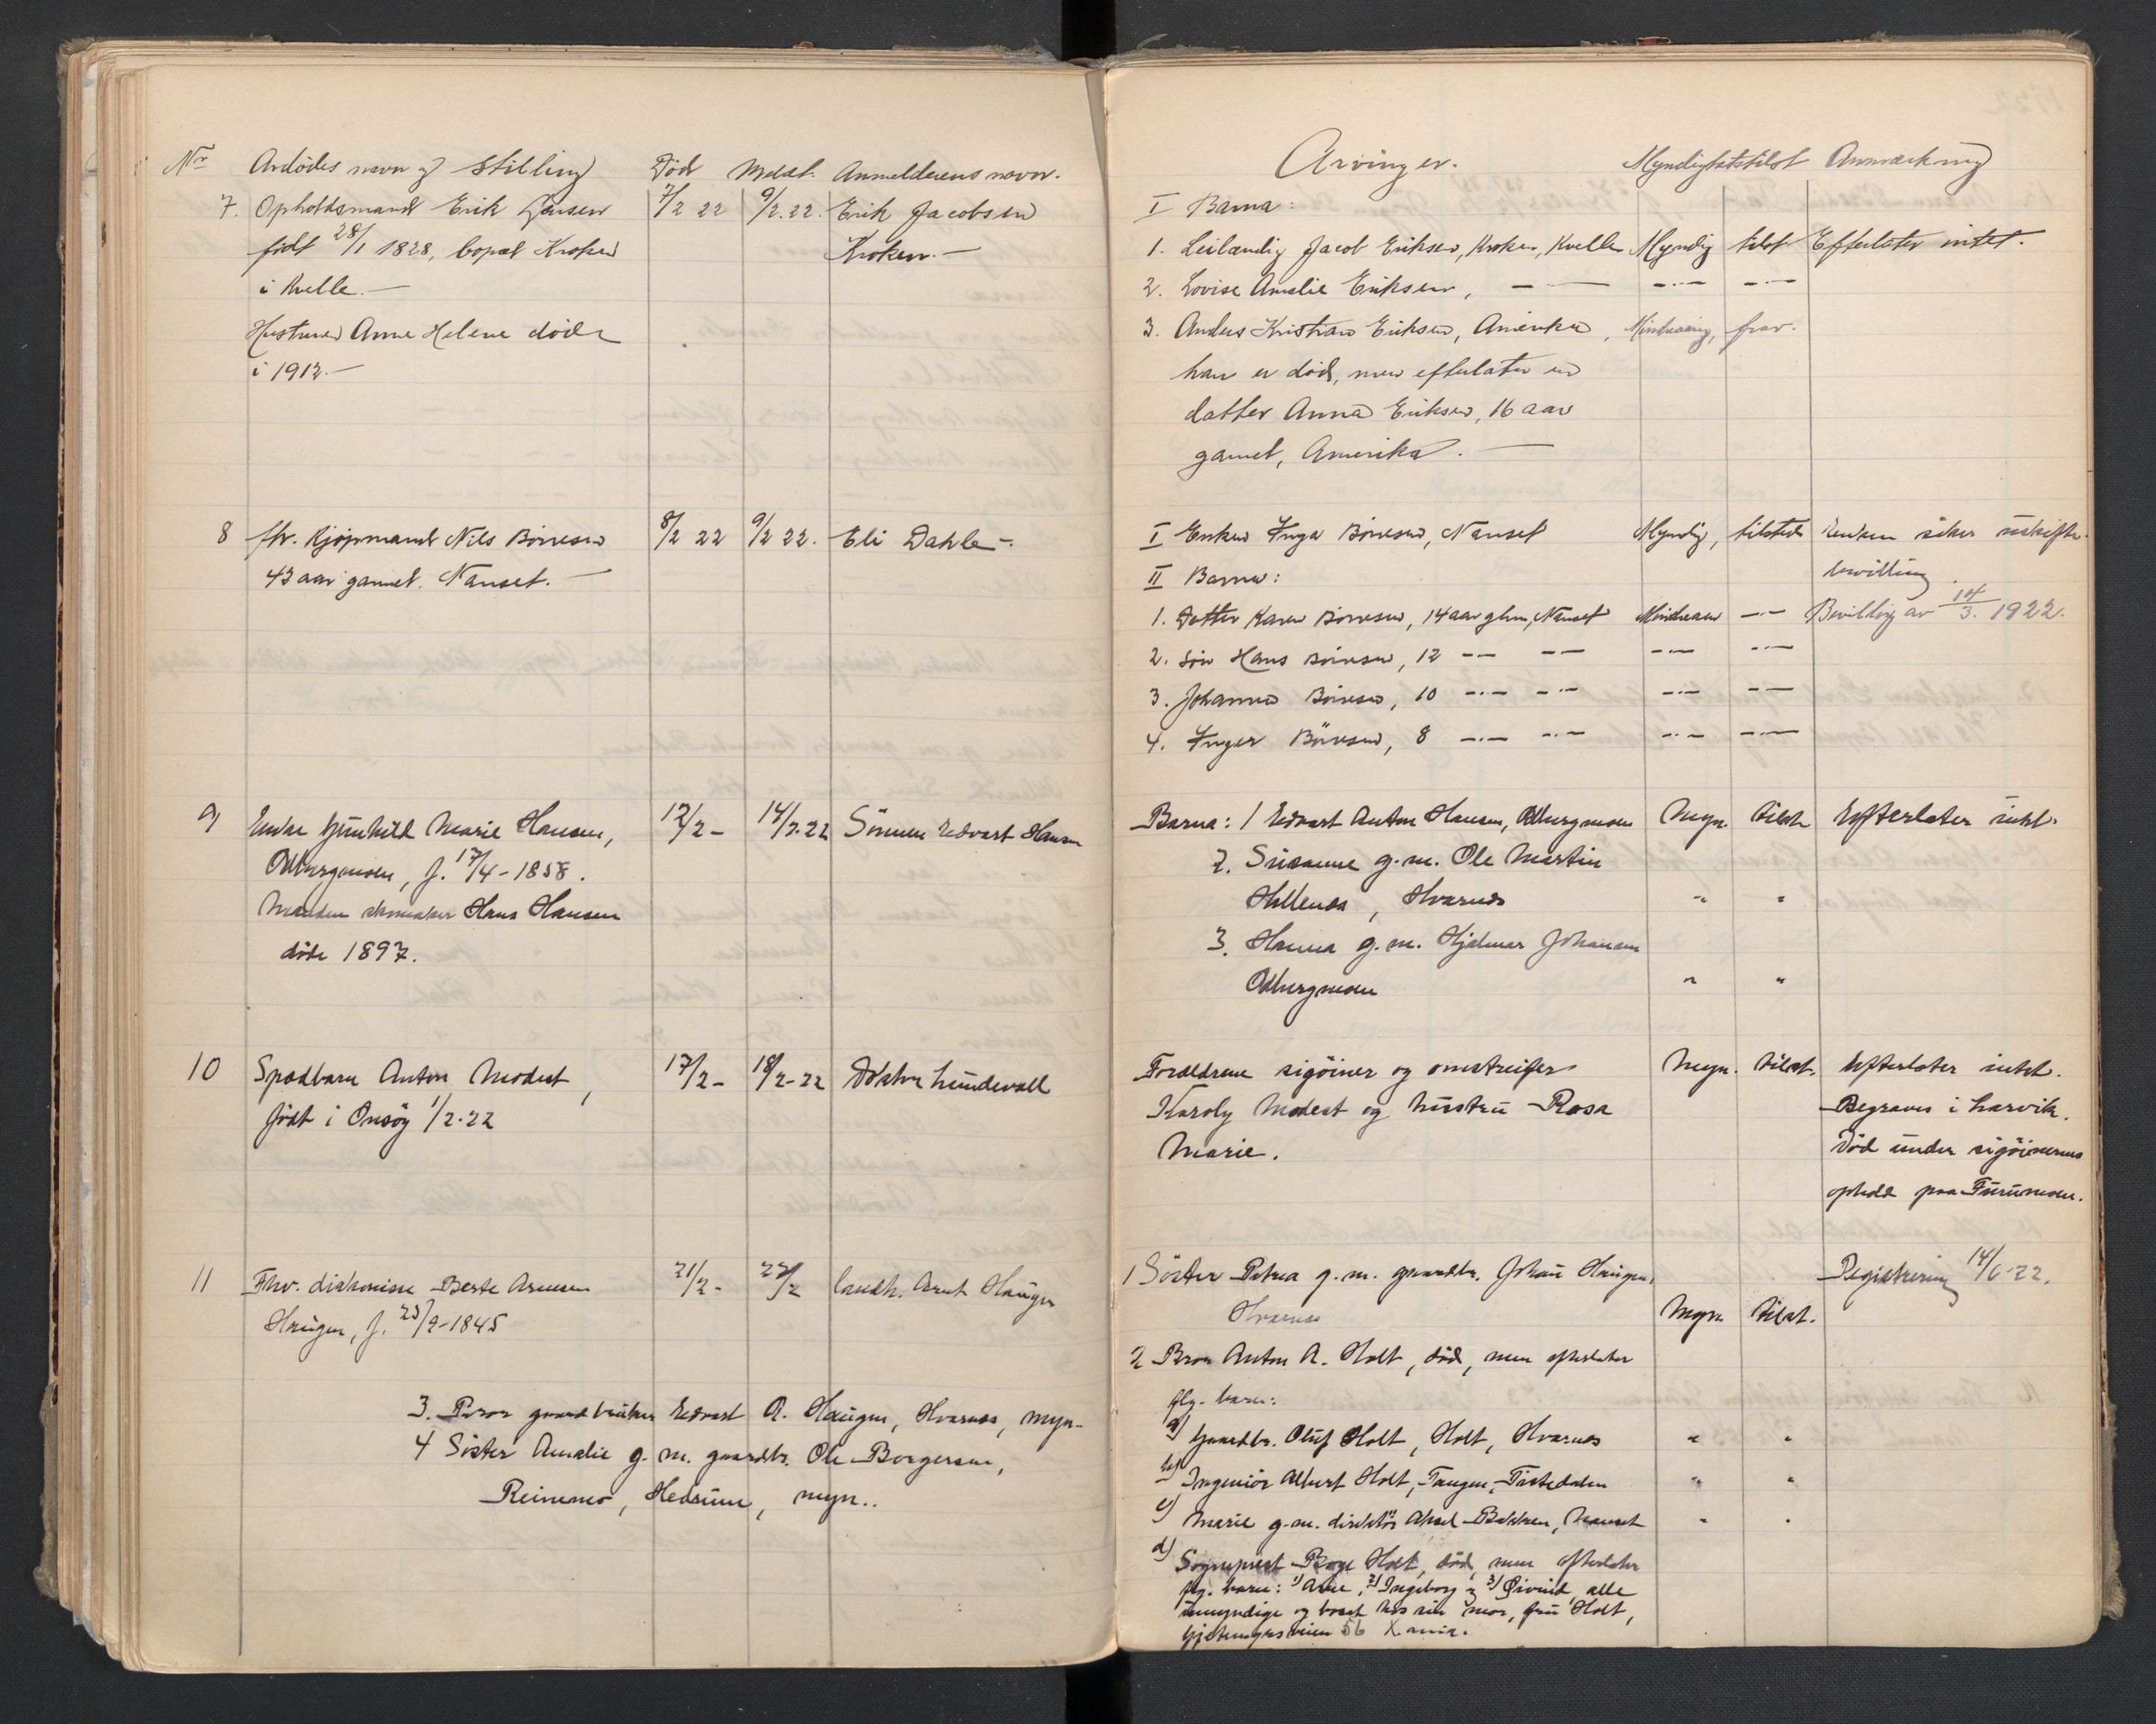 Nr Avdødes navn og stilling Død Meldt. Anmelderens navn.
7. Opholdsmand Erik Jensen 7/2 22 9/2.22. Erik Jacobsen
født 28/1 1828, bopæl Kroken Kroken.—
i Kvelle.—
Hustruen Anne Helene døde
i 1912.—
8 fhv. Kjøpmand Nils Börresen 8/2 22 9/2 22. Eli Dahle—.
43 aar gammel. Nanset.—
9 Enke Gunhild Marie Hansen, 12/2 – 14/2.22 Sönnen Edvart Hansen
Odbergmoen, f. 17/4-1858.
Manden skomaker Hans Hansen
döde 1897.
10 Spædbarn Anton Modest, 17/2 – 18/2-22 Doktor Lundevall
född i Onsöy 1/2.22
11 Fhv. diakonisse Berte Arnesen 21/2 – 22/2 landh. Arnt Haugen
Haugen, f. 23/9-1845
3. Bror gaardbruker Edvart A. Haugen, Hvarnes, myn.
4 Söster Amalie g. m. gaardbr. Ole Borgersen,
Reinemo, Hedrum, myn..
Arvinger. Myndighetstilst Anmærkning
I Barna:
1. Leilænding Jacob Eriksen, Kroken, Kvelle Myndig tilst Efterlater intet.
2. Lovise Amalie Eriksen, — — -·— -·—
3. Anders Kristian Eriksen, Amerika, Mindreaarig, frav.
han er död, men efterlater en
datter Anna Eriksen, 16 aar
gamel, Amerika.—
I Enken Inga Börresen, Nanset Myndig, tilstede Enken söker uskifte-
II Barna: bevilling.
1. Datter Karen Börresen, 14 aar glm, Nanset Mindreaar -·— Bevilling av 14/3. 1922.
2. Sön Hans Börresen, 12 -— -·— -·— -·—
3. Johanne Börresen, 10 -·— -·— -·— -·—
4. Inger Börresen, 8 -·— -·— -·— -·—
Barna: 1 Edvart Anton Hansen, Odbergmoen Myn. tilst. Efterlater intet.
2. Susanne g.m. Ole Martin
Hellenes, Hvarnes " "
3. Hanna g.m. Hjalmar Johansen
Odbergmoen " "
Forældrene sigöiner og omstreifer Myn. tilst. Efterlater intet.
Karoly Modest og hustru Rosa Begraves i Larvik.
Marie. Död under sigöinernes
ophold paa Furumoen.
1 Söster Petrea g.m. gaardbr. Johan Haugen, Registrering 14/6-22.
Hvarnes Myn tilst.
2 Bror Anton A. Holt, död, men efterlater
flg. barn:
a) Gaardbr. Oluf Holt, Holt, Hvarnes " "
b) Ingeniör Albert Holt, Tangen, Tistedalen " "
c) Marie g.m. direktör Aksel Bakken, Nanset " "
d) Sogneprest Borge Holt, död, men efterlater
flg. barn: 1) Arne, 2) Ingeborg og 3) Øivind, alle
umyndige og bosat hos sin mor, fru Holt,
Gjetemyrsveien 56 Xania.